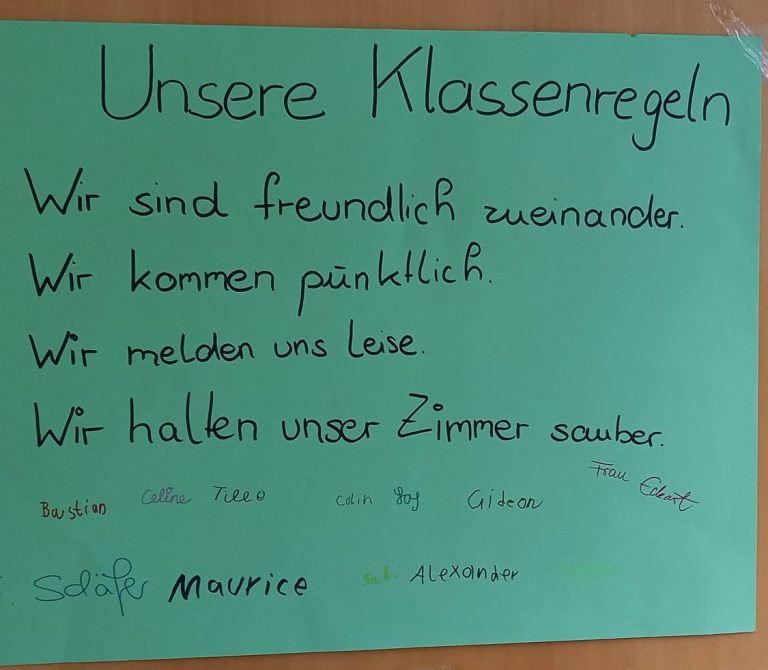 Unsere Klassenregeln
Wir sind freundlich zueinander.
Wir kommen pünktlich.
Wir melden uns leise.
Wir halten unser Zimmer sauber.
Bastian Celine Tileo Colin Gideon Frau Eckart
Schäfer Maurice Alexander